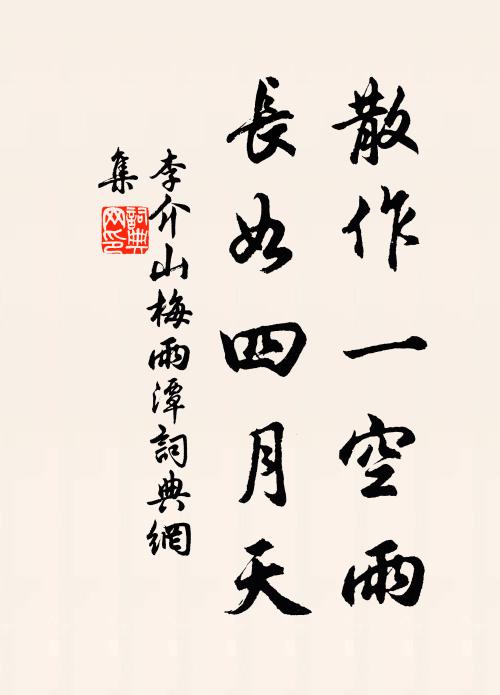 散作一空雨
長如四月天
李介山梅雨潭詞典網
集
詞典
网印